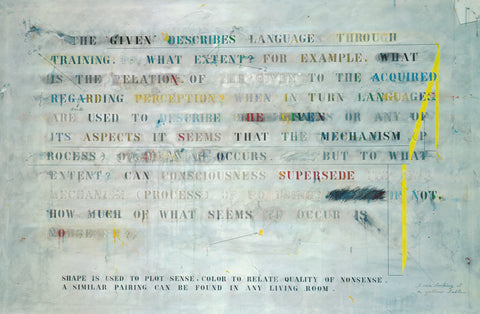 THE GIVEN DESCRIBES LANGUAGE THROUGH
TRAINING. WHAT EXTENT? FOR EXAMPLE. WHAT
IS THE RELATION OF TO THE ACQUIRED
REGARDING PERCEPTION? WHEN IN TURN LANGUAGE
ARE USED TO DESCRIBE THE GIVEN OR ANY OF
ITS ASPECTS IT SEEMS THAT THE MECHANISM (P
ROCESS? OCCURS. BUT TO WHAT
EXTENT? CAN CONSCIOUSNESS SUPERSEDE
MECHANISM (PROCESS) OF NOT.
HOW MUCH OF WHAT SEEMS TO OCCUR IS
SHAPE IS USED TO PLOT SENSE. COLOR TO RELATE QUALITY OF NONSENSE.
A SIMILAR PAIRING CAN BE FOUND IN ANY LIVING ROOM.
I am looking at
a yellow table